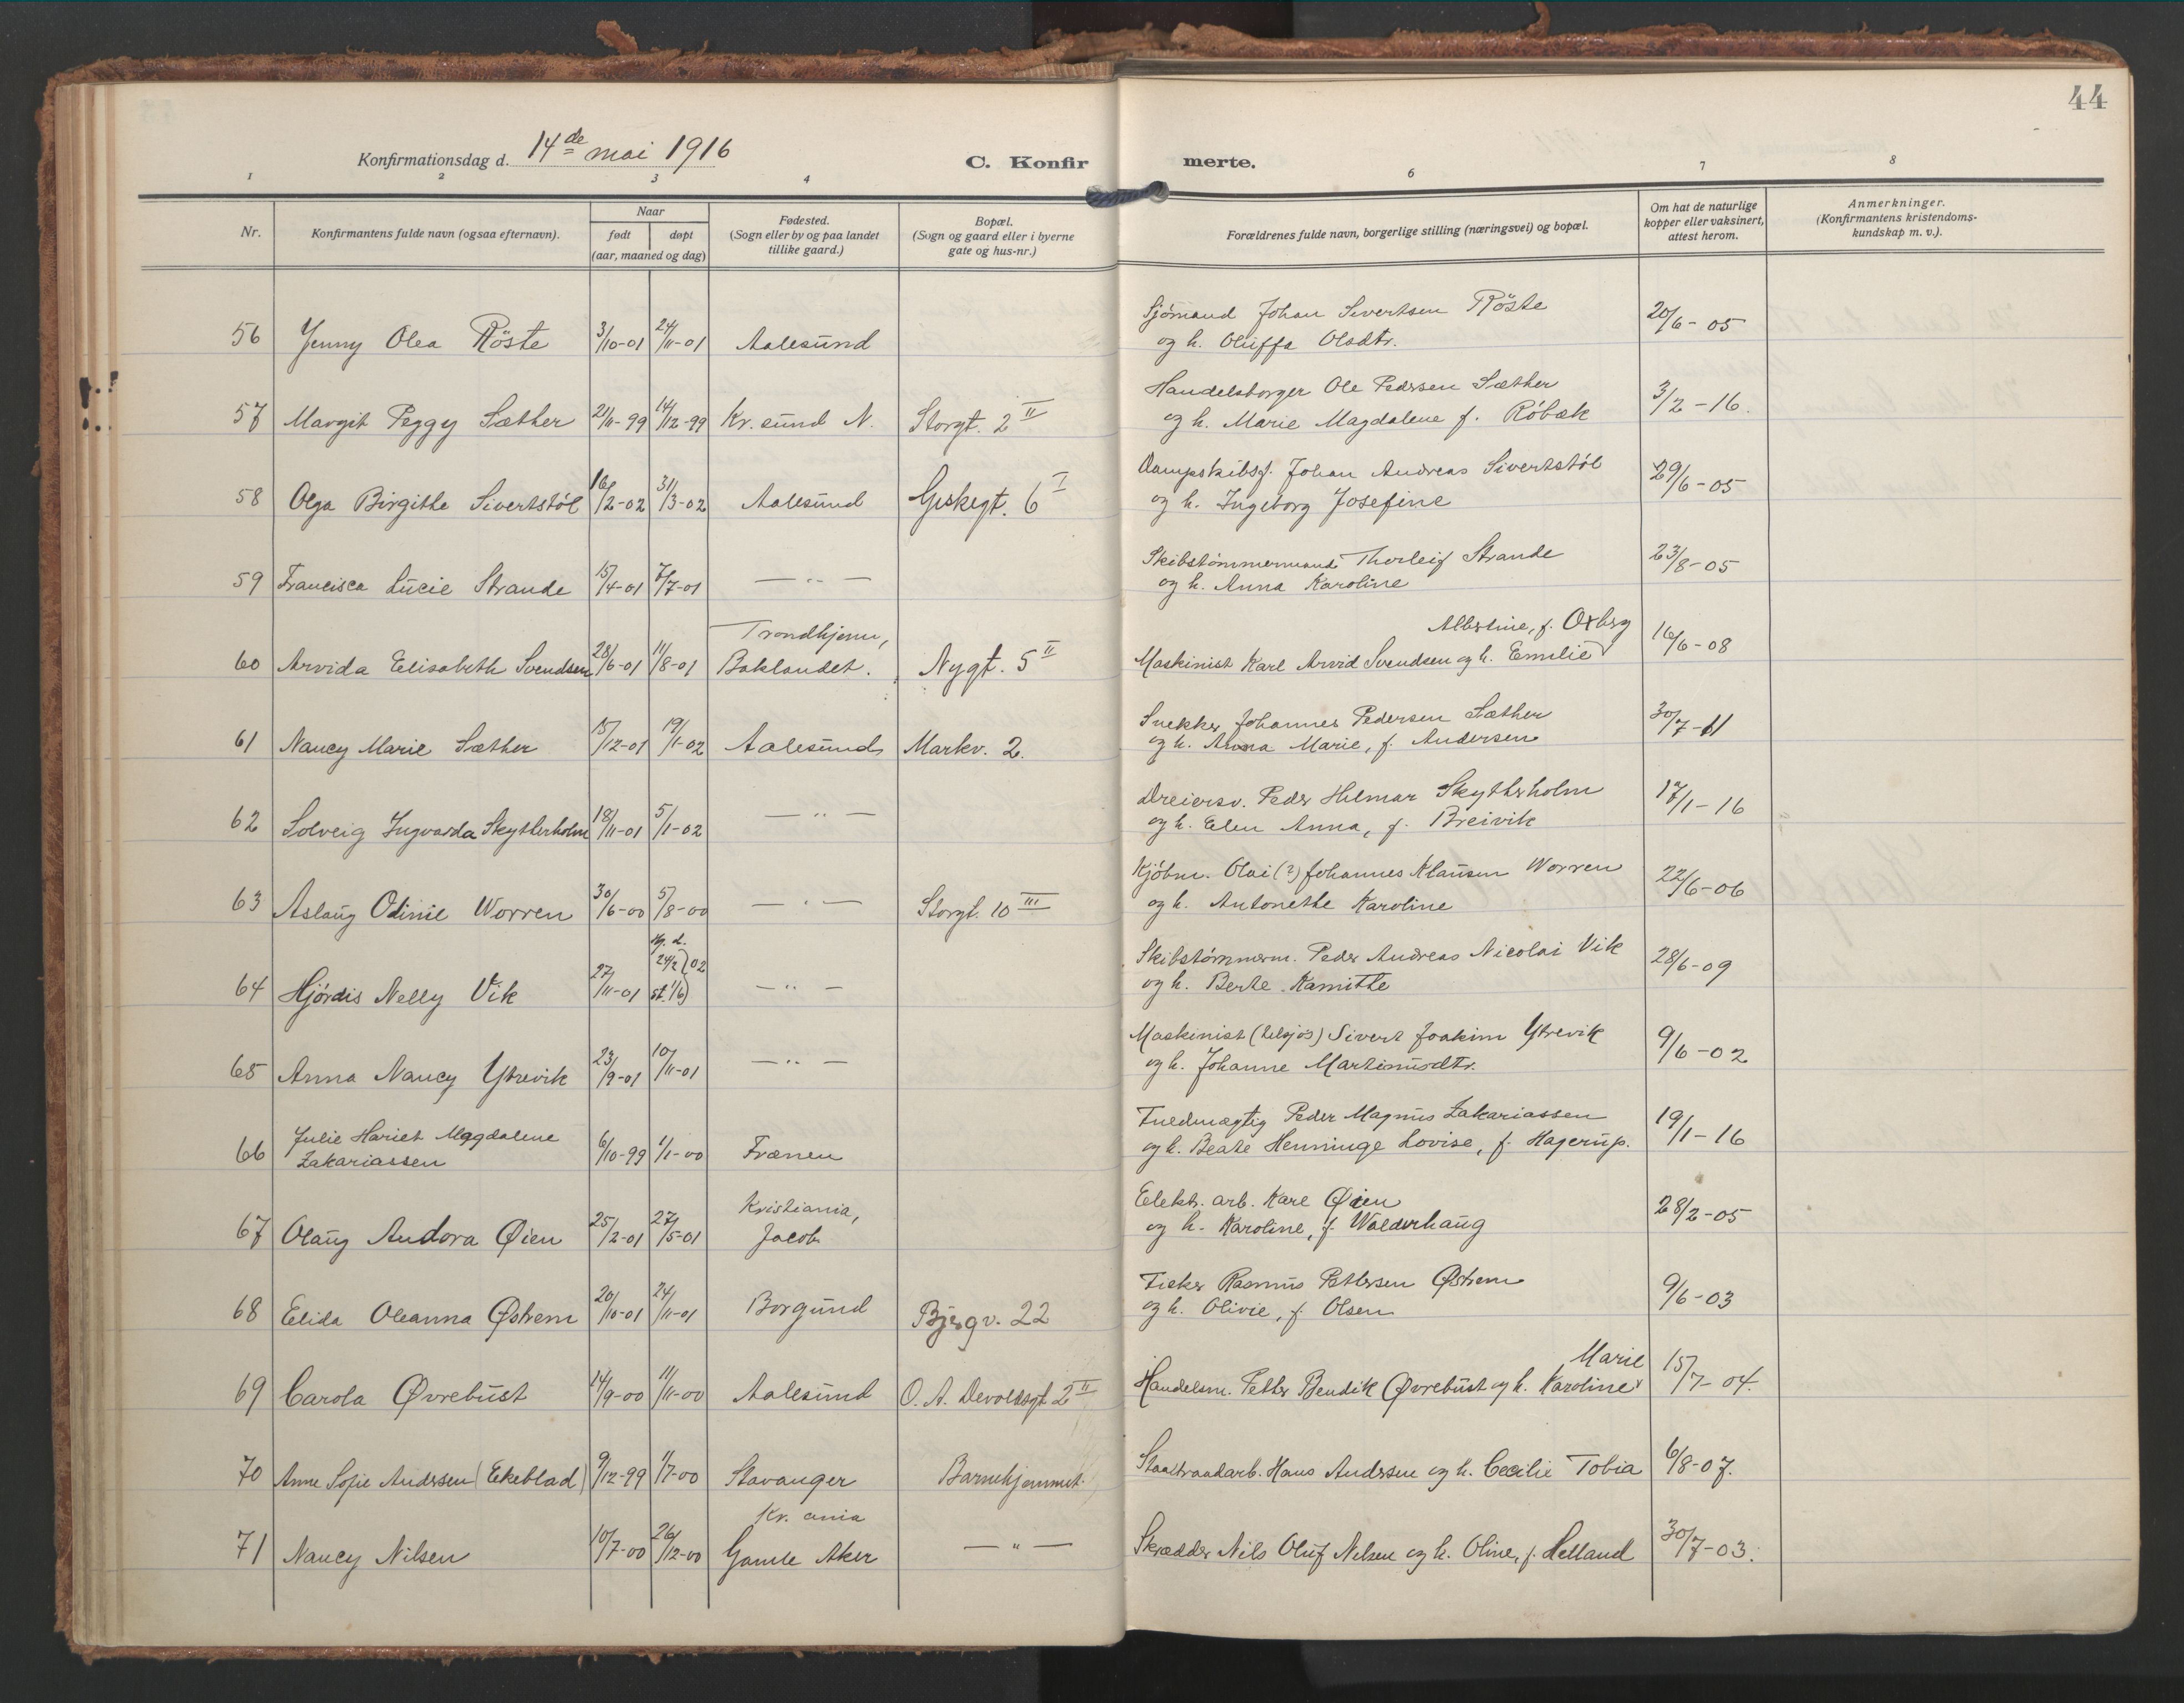 44
Konfirmationsdag d. 14de mai 1916
C. Konfirmerte.
1 2 3 4 6 7 8
Nr.
Konfirmantens fulde navn (ogsaa efternavn).
Naar
født døpt
(aar, maaned og dag)
Fødested.
(Sogn eller by og paa landet
tillike gaard.)
Bopæl.
(Sogn og gaard eller i byerne
gate og hus-nr.)
Forældrenes fulde navn, borgerlige stilling (næringsvei) og bopæl.
Om hat de naturlige
kopper eller vaksinert,
attest herom.
Anmerkninger.
(Konfirmantens kristendoms-
kundskap m. v.).
Sjømand Johan Sivertsen Röste
56 Jenny Olea Röste 3/10-01 24/11-01 Aalesund og h. Oluffa Olsdtr. 20/6-05
Handelsborger Ole Pedersen Sæther
57 Margit Peggy Sæther 21/11-99 14/12-99 Kr.sund N. Storgt. 2 II og h. Marie Magdalene f. Röbæk 3/2-16.
Dampskibsf. Johan Andreas Sivertstøl
58 Olga Birgithe Sivertstøl 16/2-02 31/3-02 Aalesund Giskegt. 6 I og h. Ingeborg Josefine 29/6-05
Skibstømmermand Thorleif Strande
59 Francisca Lucie Strande 15/4-01 7/7-01 — " — og h. Anna Karoline 23/8-05
Trondhjem, Albertine, f. Oxberg
60 Arvida Elisabeth Svendsen 28/6-01 11/8-01 Baklandet. Nygt. 5 II Maskinist Karl Arvid Svendsen og h. Emilie 16/6-08
Snekker Johannes Pedersen Sæther
61 Nancy Marie Sæther 15/12-01 19/1-02 Aalesund Markv. 2. og h. Anna Marie, f. Andersen 30/7-11
Dreiersv. Peder Hilmar Skytterholm
62 Solveig Ingvarda Skytterholm 18/11-01 5/1-02 — " — og h. Elen Anna, f. Breivik 17/1-16
Kjøbm. Olai (?) Johannes Klausen Worren
63 Aslaug Odinie Worren 30/6-00 5/8-00 — " — Storgt. 10 III og h. Antonethe Karoline 22/6-06
Skibstømmerm. Peder Andreas Nicolai Vik
64 Hjørdis Nelly Vik 27/11-01 hj. d. 24/2 st. 1/6 } 02 — " — og h. Berte Kamitte 28/6-09
Maskinist (tilsjøs) Sivert Joakim Ytrevik
65 Anna Nancy Ytrevik 23/9-01 10/11-01 — " — og h. Johanne Martinusdtr. 9/6-02
Julie Hariet Magdalene Fuldmægtig Peder Magnus Zakariassen
66 Zakariassen 6/10-99 1/1-00 Frænen og h. Beate Henninge Lovise, f. Hagerup. 19/1-16
Kristiania, Elektr. arb. Karl Øien
67 Olaug Andora Øien 25/2-01 27/5-01 Jacob og h. Karoline, f. Walderhaug 28/2-05
Fisker Rasmus Pettersen Østrem
68 Elida Oleanna Østrem 20/10-01 24/11-01 Borgund Bjergv. 22 og h. Olivie, f. Olsen 9/6-03
Marie
69 Carola Øvrebust 14/9-00 11/11-00 Aalesund O. A. Devoldsgt. 2 II Handelsm. Petter Bendik Øvrebust og h. Karoline 15/7-04.
70 Anne Sofie Andersen (Ekeblad) 9/12-99 1/7-00 Stavanger Barnehjemmet. Staaltraadarb. Hans Andersen og h. Cecilie Tobia 6/8-07.
Kr.ania
71 Nancy Nilsen 10/7-00 26/12-00 Gamle Aker — " — Skrædder Nils Oluf Nilsen og h. Oline, f. Helland 30/7-03.